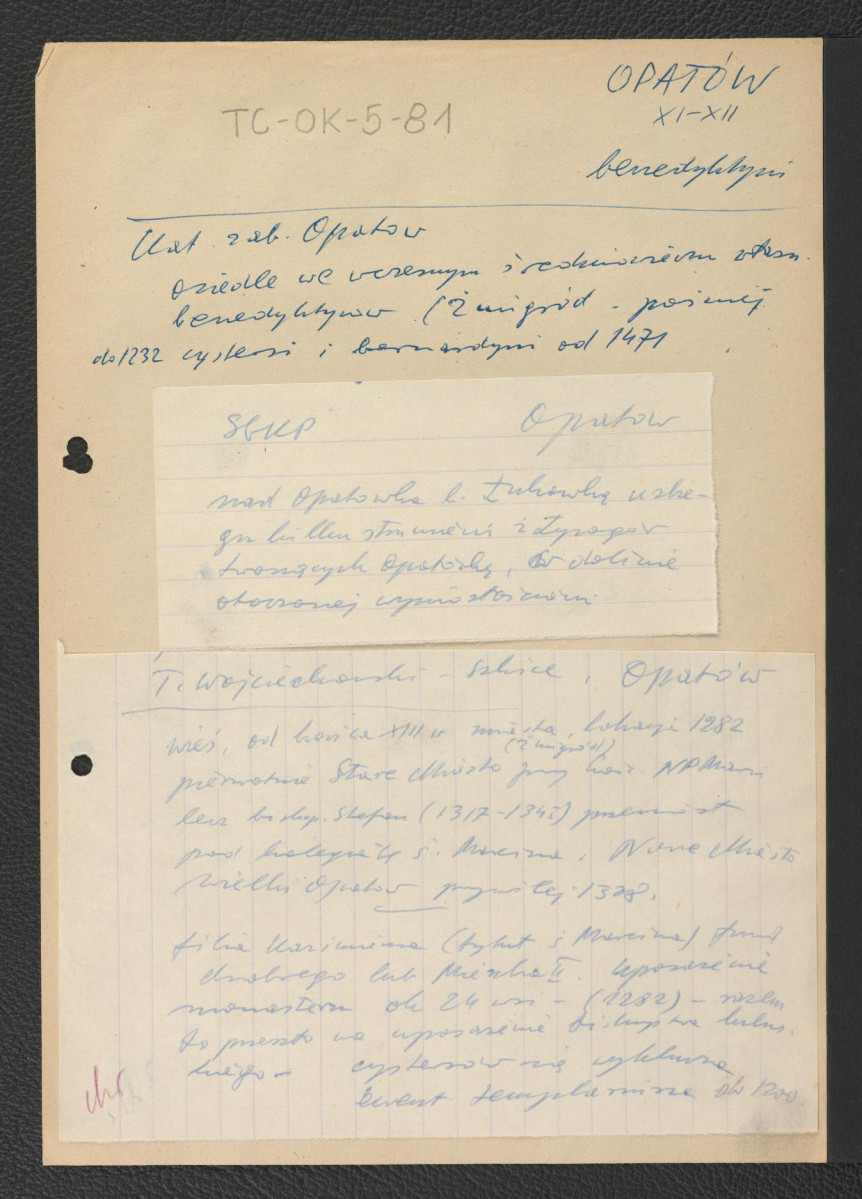 OPATÓW
XI-XII
TC-OK-5-81
benedyktyni
Kat. zab. Opatow
osiedle we wczesnym średniowieczu własn.
benedyktynow (Żmigród - poźniej
do 1232 cystersi i bernardyni od 1471
SGKP Opatow
nad Opatowka l. Łukawką u zbie-
gu kilku strumieni z Łysogór
tworzących Opatówkę, w dolinie
otoczonej wyniosłościami
T. Wojciechowski - Szkice, Opatów
wieś, od końca XIII w miasto, lokacja 1282
(Żmigród)
pierwotnie Stare Miasto przy kośc. NPMarii
lecz biskup Stefan (1317-1345) przeniósł
pod kolegiatę ś. Marcina, Nowe Miasto
Wielki Opatow przywilej 1328.
filia Kazimierza (tytuł ś Marcina) fund
chrobrego lub Mieszka II. Uposażenie
monasteru ok 24 wsi - (1282) -
to przeszło na uposażenie biskupstwa lubus-
kiego - cystersów się wyklucza
Ewent templariusze ok 1200